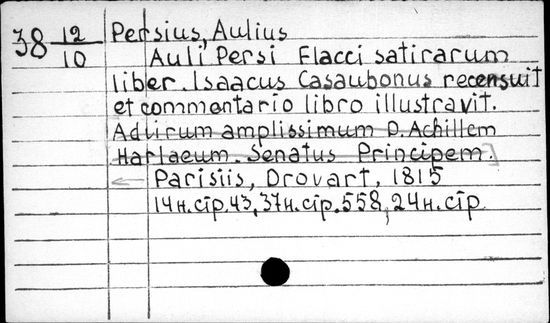 38 12/10 Persius, Aulius
Auli Persi Flacci satirarum
liber. Isaacus Casaubonus recensuit
et commentario libro illustravit.
Ad virum amplissimum D. Achillem
Harlaeum. Senatus Principem.]
← Parisiis, Drovart, 1815
14н. cīp. 43, 37н. cīp. 558, 24н. cīp.